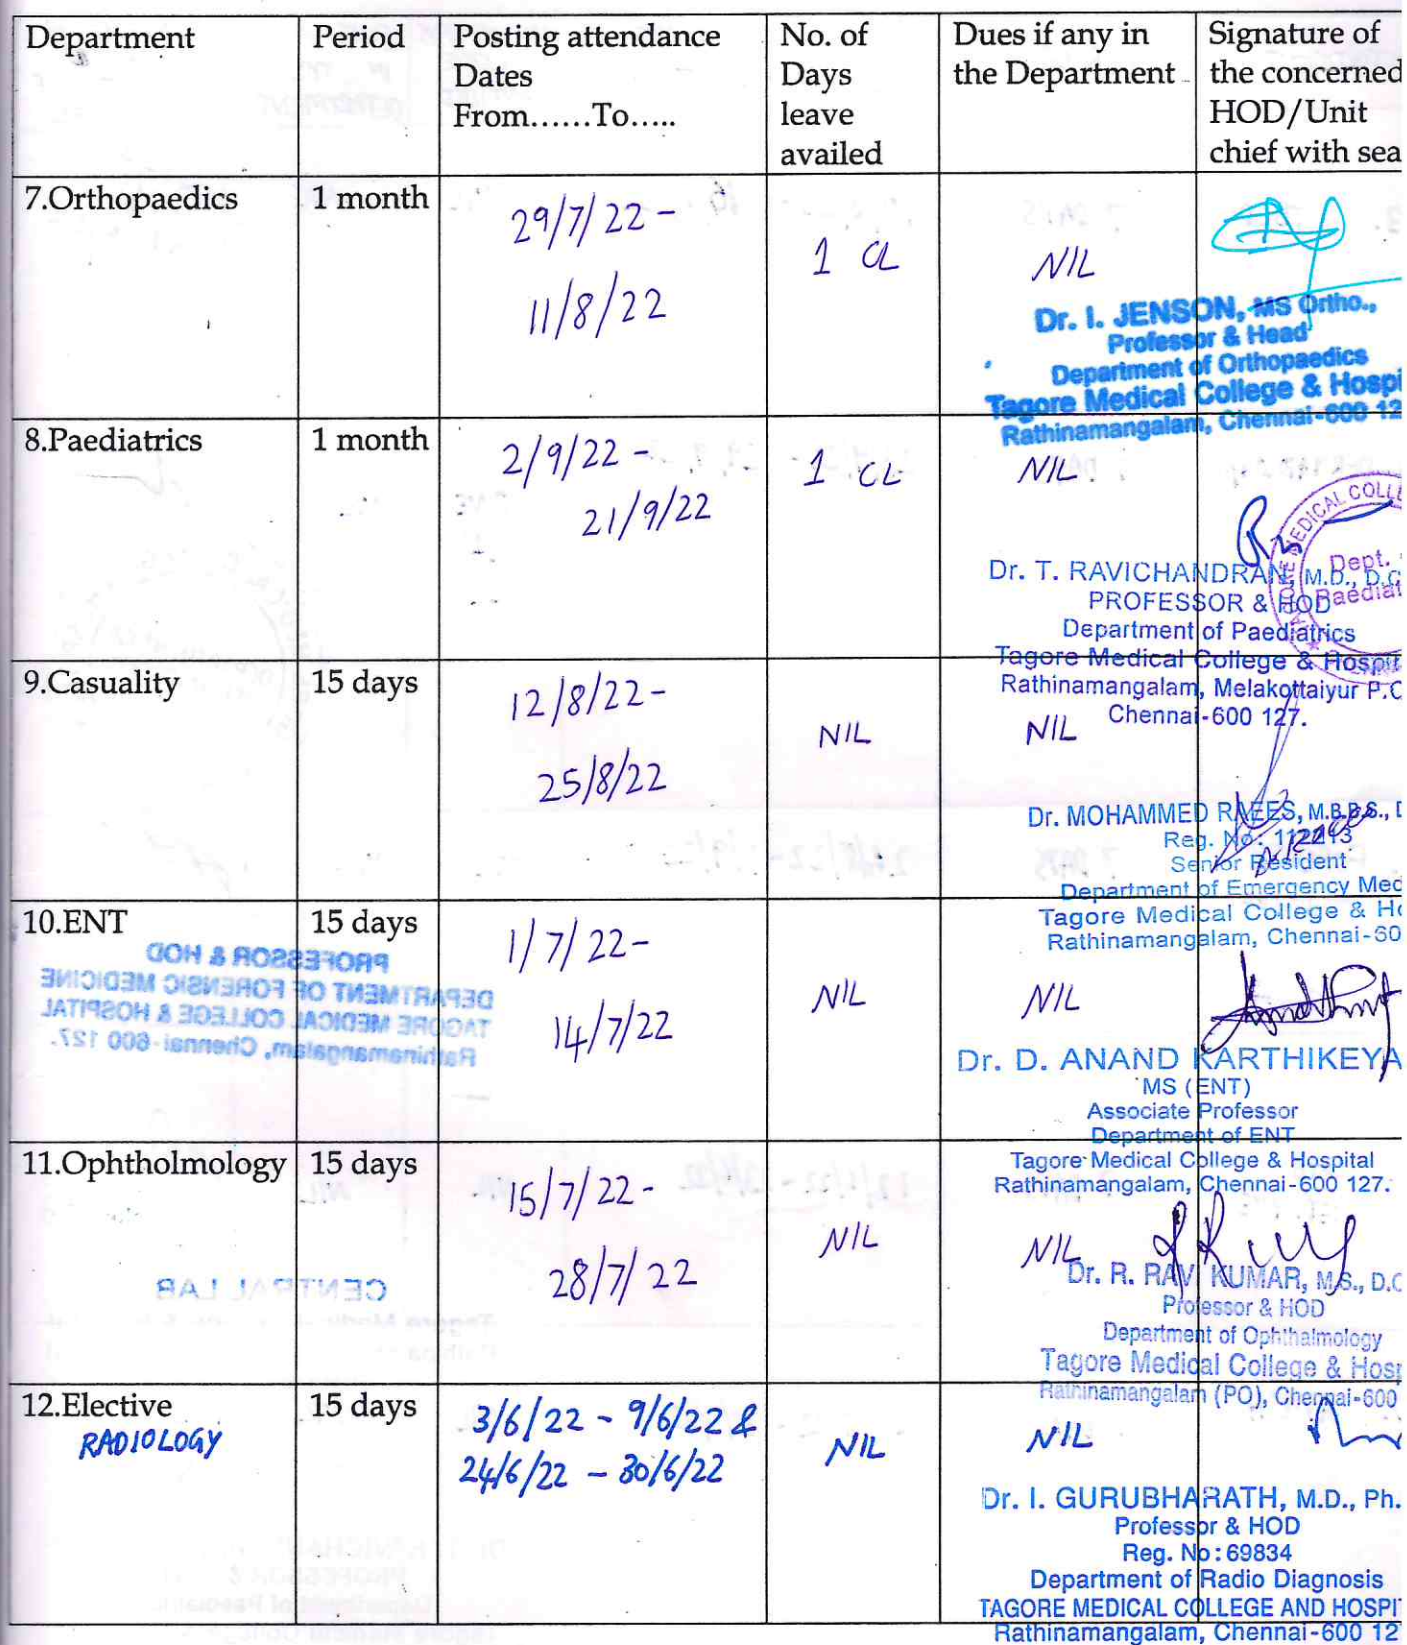 Department
Period
Posting attendance
Dates
From......To.....
No. of
Days
leave
availed
Dues if any in
the Department
Signature of
the concerned
HOD/Unit
chief with sea
7.Orthopaedics
1 month
29/7/22 -
11/8/22
1 CL
NIL
Dr. I. JENSON, MS Ortho.,
Professor & Head
Department of Orthopaedics
Tagore Medical College & Hospi
Rathinamangalam, Chennai-600 12
8.Paediatrics
1 month
2/9/22 -
21/9/22
1 CL
NIL
MEDICAL COLLE
Dept.
Paediat
Dr. T. RAVICHANDRAN, M.D., D.C
PROFESSOR & HOD
Department of Paediatrics
Tagore Medical College & Hospit
Rathinamangalam, Melakottaiyur P.O
Chennai-600 127.
9.Casuality
15 days
12/8/22 -
25/8/22
NIL
NIL
Dr. MOHAMMED RAEES, M.B.B.S., D
Reg. No: 112213
Senior Resident
Department of Emergency Med
Tagore Medical College & Ho
Rathinamangalam, Chennai-60
10.ENT
15 days
PROFESSOR & HOD
DEPARTMENT OF FORENSIC MEDICINE
TAGORE MEDICAL COLLEGE & HOSPITAL
Rathinamangalam, Chennai-600 127.
1/7/22 -
14/7/22
NIL
NIL
Dr. D. ANAND KARTHIKEYA
MS (ENT)
Associate Professor
Department of ENT
Tagore Medical College & Hospital
Rathinamangalam, Chennai-600 127.
11.Optholmology
15 days
15/7/22 -
28/7/22
NIL
NIL
CENTRAL LAB
Dr. R. RAVI KUMAR, M.S., D.O
Professor & HOD
Department of Ophthalmology
Tagore Medical College & Hosp
Rathinamangalam (PO), Chennai-600
12.Elective
RADIOLOGY
15 days
3/6/22 - 9/6/22 &
24/6/22 - 30/6/22
NIL
NIL
Dr. I. GURUBHARATH, M.D., Ph.
Professor & HOD
Reg. No:69834
Department of Radio Diagnosis
TAGORE MEDICAL COLLEGE AND HOSPIT
Rathinamangalam, Chennai-600 12